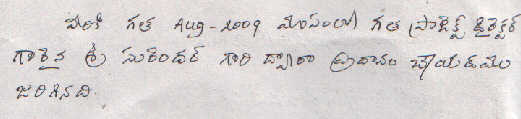 వీరికి గత Aug-2009 మాసంలో గత ప్రాజెక్ట్ డైరెక్టర్
గారైన శ్రీ సురేందర్ గారి ద్వారా ప్రదానం చేయడము
జరిగినది.